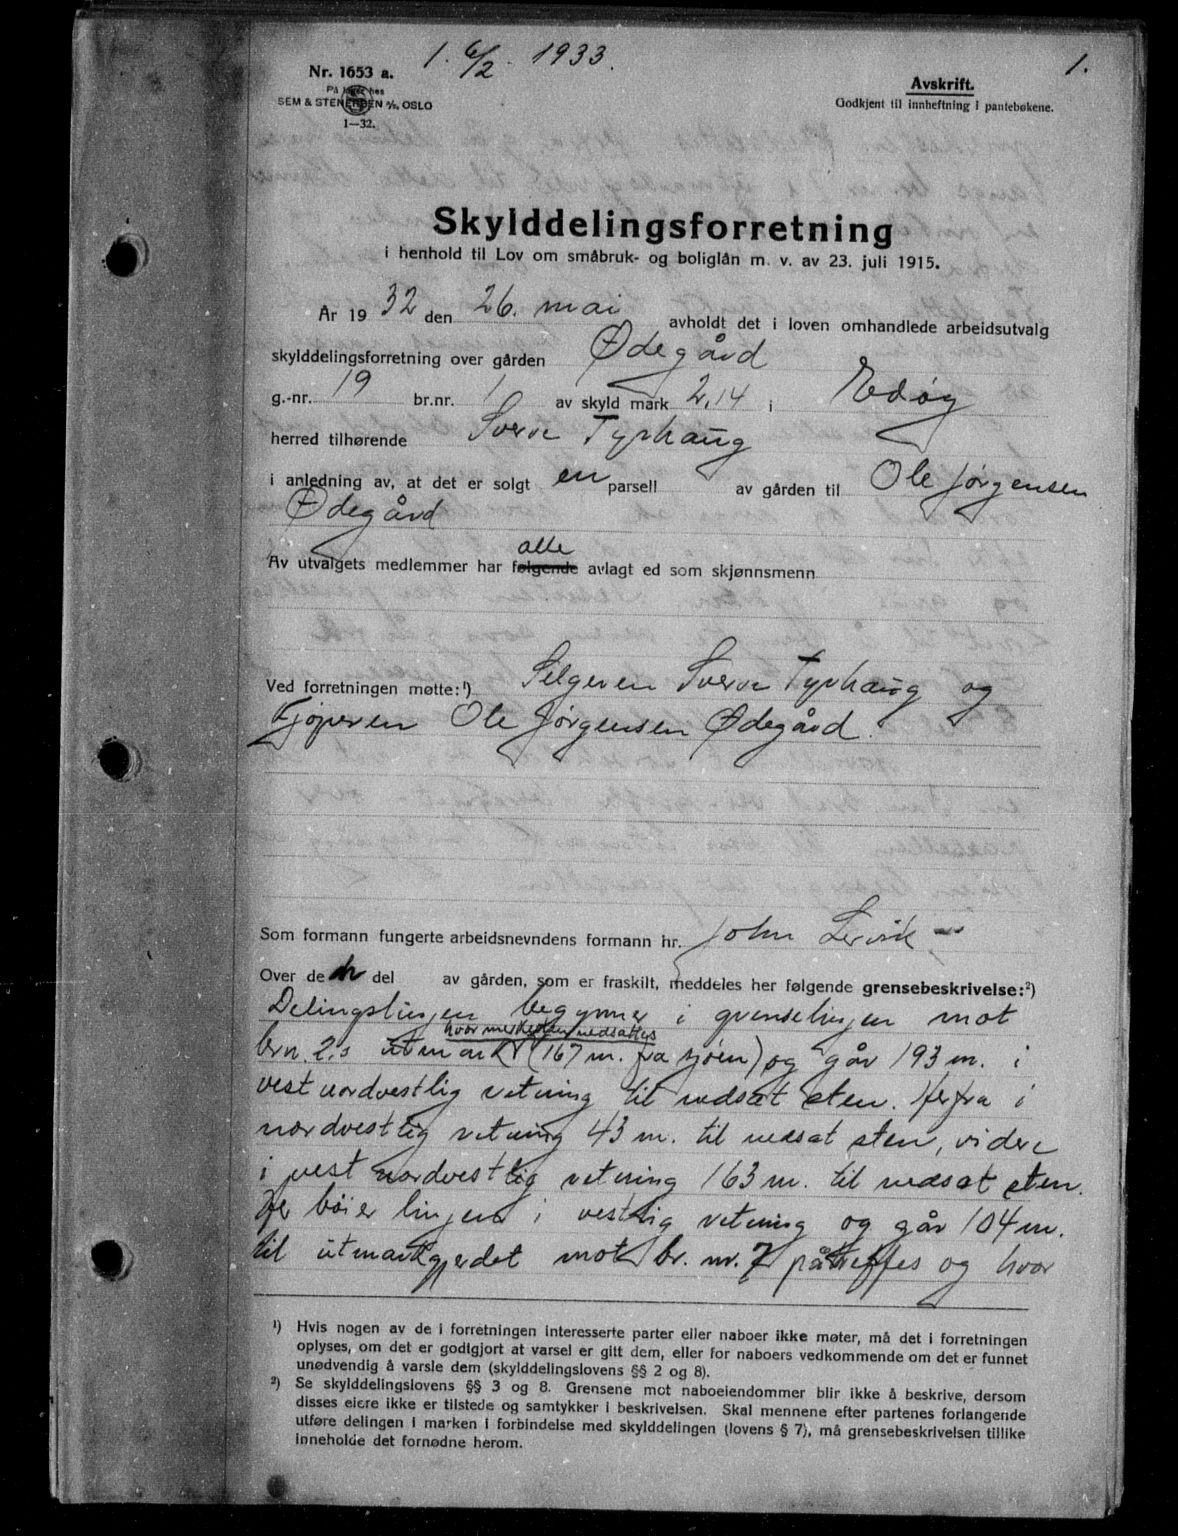 1. 6/2. 1933.
1.
Nr. 1653 a.
På lager hos
SEM & STENERSEN A/S, OSLO
1—32.
Avskrift.
Godkjent til innheftning i pantebøkene.
Skylddelingsforretning
i henhold til Lov om småbruk- og boliglån m. v. av 23. juli 1915.
År 1932 den 26. mai avholdt det i loven omhandlede arbeidsutvalg
skylddelingsforretning over gården Ødegård
g.-nr. 19 br.nr. 1 av skyld mark 2,14 i Edøy
herred tilhørende Sverre Tyrhaug
i anledning av, at det er solgt en parsell av gården til Ole Jørgensen
Ødegård
alle
Av utvalgets medlemmer har følgende avlagt ed som skjønnsmenn
Ved forretningen møtte:¹) Selgeren Sverre Tyrhaug og
Kjøperen Ole Jørgensen Ødegård.
Som formann fungerte arbeidsnevndens formann hr. John Lervik,
Over den del av gården, som er fraskilt, meddeles her følgende grensebeskrivelse:²)
Delingslinjen begynner i grenselinjen mot
hvor merkesten nedsattes
brn. 2,s utmark (167 m. fra sjøen) og går 193 m. i
vestnordvestlig retning til nedsat sten. Herfra i
nordvestlig retning 43 m. til nedsat sten, videre
i vestnordvestlig retning 163 m. til nedsat sten.
Her bøier linjen i vestlig retning og går 104 m.
til utmarkgjerdet mot br. nr. 7 påtreffes og hvor
¹) Hvis nogen av de i forretningen interesserte parter eller naboer ikke møter, må det i forretningen
oplyses, om det er godtgjort at varsel er gitt dem, eller for naboers vedkommende om det er funnet
unødvendig å varsle dem (skylddelingslovens §§ 2 og 8).
²) Se skylddelingslovens §§ 3 og 8. Grensene mot naboeiendommer blir ikke å beskrive, dersom
disses eiere ikke er tilstede og samtykker i beskrivelsen. Skal mennene efter partenes forlangende
utføre delingen i marken i forbindelse med skylddelingen (lovens § 7), må grensebeskrivelsen tillike
inneholde det fornødne herom.